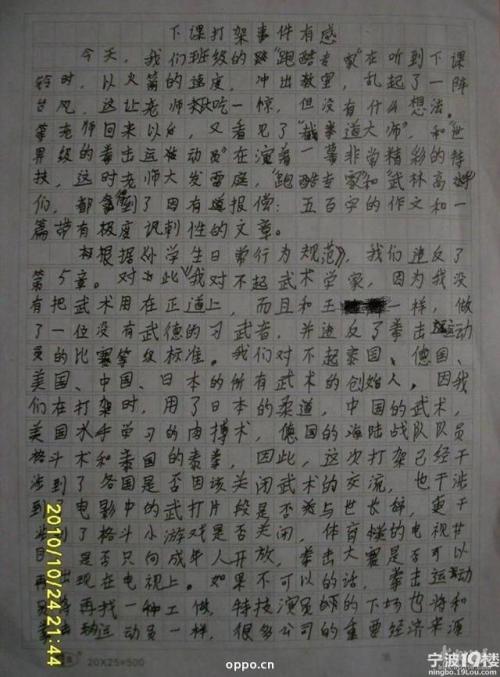 下课打架事件有感
今天，我们班级的"跑酷专家"在听到下课
铃时，以火箭的速度，冲出教室，乱起了一阵
台风，这让老师大吃一惊，但没有什么想法。
当老师回来以后，又看见了"截拳道大师"，和"世
界级的拳击运动员"在演着一幕非常精彩的特
技，这时老师大发雷庭，"跑酷专家"和"武林高
们，都拿到了因有的报偿：五百字的作文和一
篇带有极度讽刺性的文章。
根据《小学生日常行为规范》，我们违反了
第5章。对此我对不起武术学家，因为我没
有把武术用在正道上，而且和王 一样，做
了一位没有武德的习武者，并违反了拳击运动
员的比赛等级标准。我们对不起泰国、德国、
美国、中国、日本的所有武术的创始人。因我
们在打架时，用了日本的柔道，中国的武术，
美国水手学习的肉搏术，德国的海陆战队队员
格斗术和泰国的泰拳，因此，这次打架已经干
涉到了各国是否因该关闭武术的交流，也干涉
到了电影中的武打片段是否要与世长辞，更干
涉到了格斗小游戏是否关闭，体育楼的电视节
目，是否只向成年人开放，拳击大赛是否可以
再出现在电视上。如果不可以的话，拳击运动
再找一种工作，特技演员师的下场也将和
拳击运动员一样，很多公司的重要经济来源
20X25=500
2010/10/24 21:44
oppo.cn
宁波19楼
ningbo.19lou.com